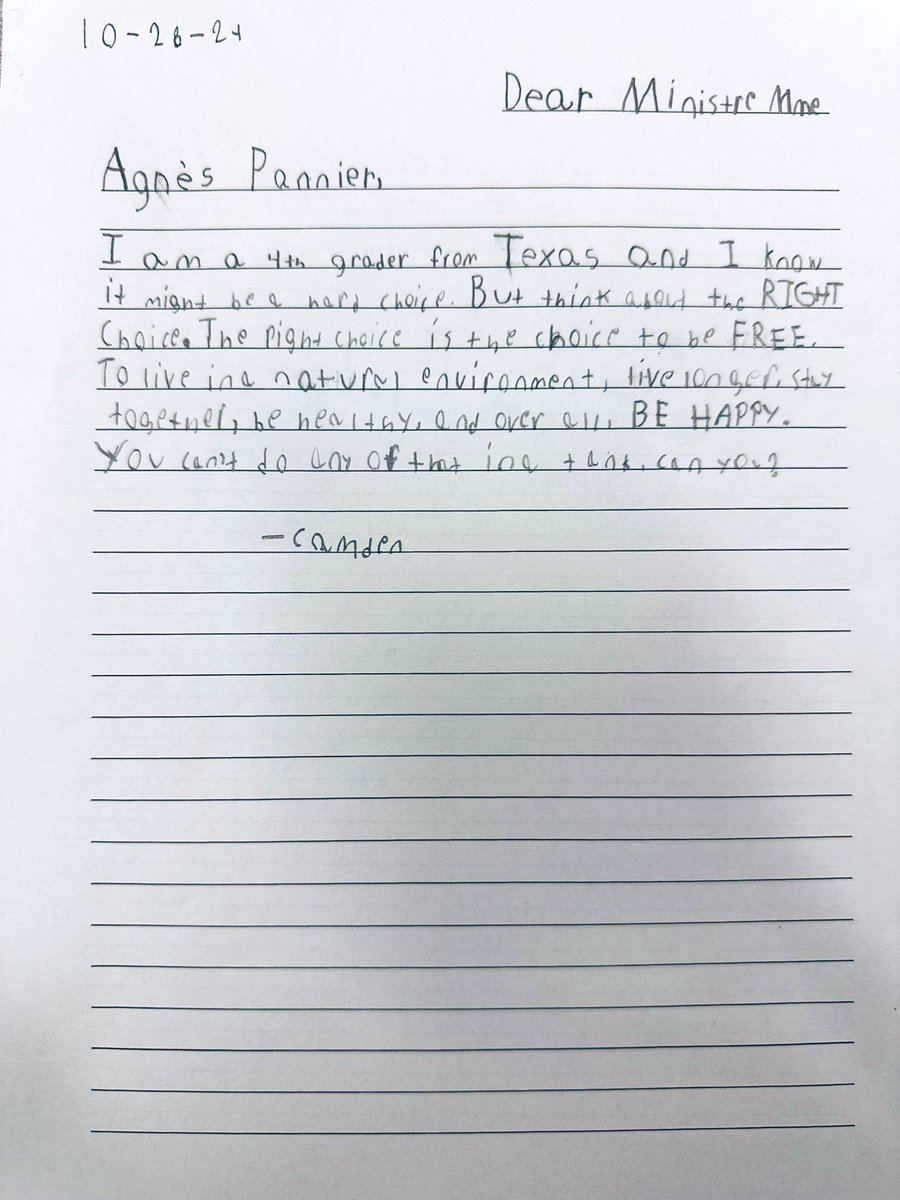 10-26-24
Dear Ministre Mme
Agnès Pannier,
I am a 4th grader from Texas and I know
it might be a hard choice. But think about the RIGHT
Choice. The Right choice is the choice to be FREE.
To live in a natural environment, live longer, stay
together, be healthy, and over all, BE HAPPY.
You can't do any of that in a tank, can you?
-Camden